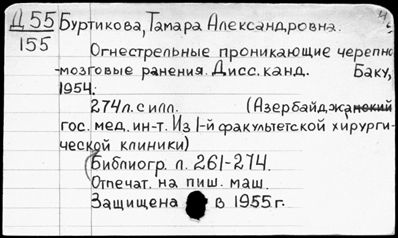 Д 55 Буртикова, Тамара Александровна.
155
Огнестрельные проникающие черепно
-мозговые ранения. Дисс. канд. Баку,
1954.
274 л. с илл. (Азербайджанский
гос. мед. ин-т. Из I-й факультетской хирурги-
ческой клиники)
Библиогр. л. 261-274.
Отпечат. на пиш. маш.
Защищена в 1955 г.